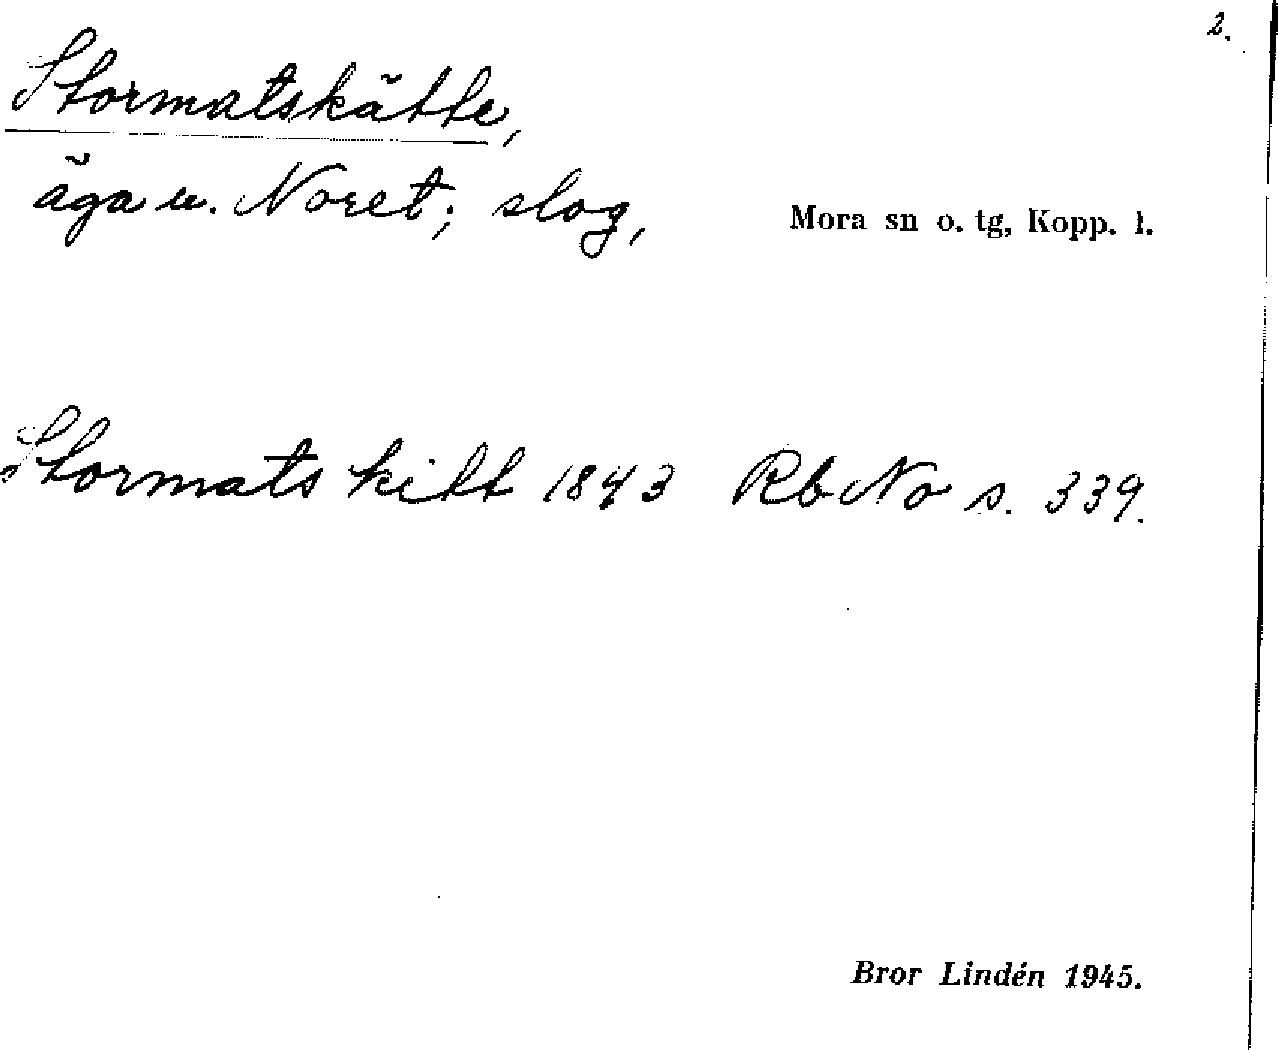 2.
Stormatskätte,
äga u. Noret; slog,
Mora sn o. tg, Kopp. l.
Stormats kitt 1843 Rb No s. 339.
Bror Lindén 1945.